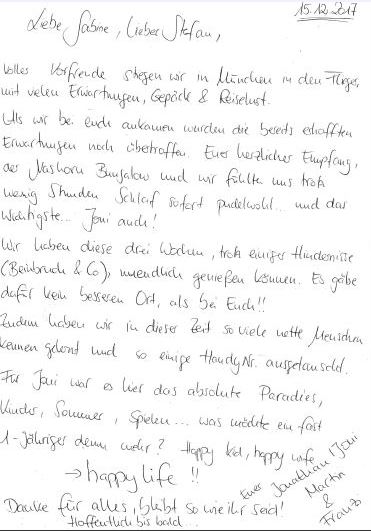 15.12.2017
Liebe Sabine, lieber Stefan,
Volles Vorfreude stiegen wir in München in den Flieger,
mit vielen Erwartungen, Gepäck & Reiselust.
Als wir bei euch ankamen wurden die bereits erhofften
Erwartungen noch übertroffen. Euer herzlicher Empfang,
der Nashorn Bungalow und wir fühlten uns trotz
wenig Stunden Schlaf sofort pudelwohl... und das
Wichtigste... Joni auch!
Wir haben diese drei Wochen, trotz einiger Hindernisse
(Beinbruch & Co), unendlich genießen können. Es gäbe
dafür kein besseren Ort, als bei Euch!!
Zudem haben wir in dieser Zeit so viele nette Menschen
kennen gelernt und so einige Handy Nr. ausgetauscht.
Für Joni war es hier das absolute Paradies,
Kinder, Sommer, Spielen... was möchte ein fast
1-Jähriger denn mehr? Happy kid, happy wife
→ happy life !!
Danke für alles, bleibt so wie ihr seid!
Hoffentlich bis bald...
Eure Jonathan / Joni
Martin
&
Franzi